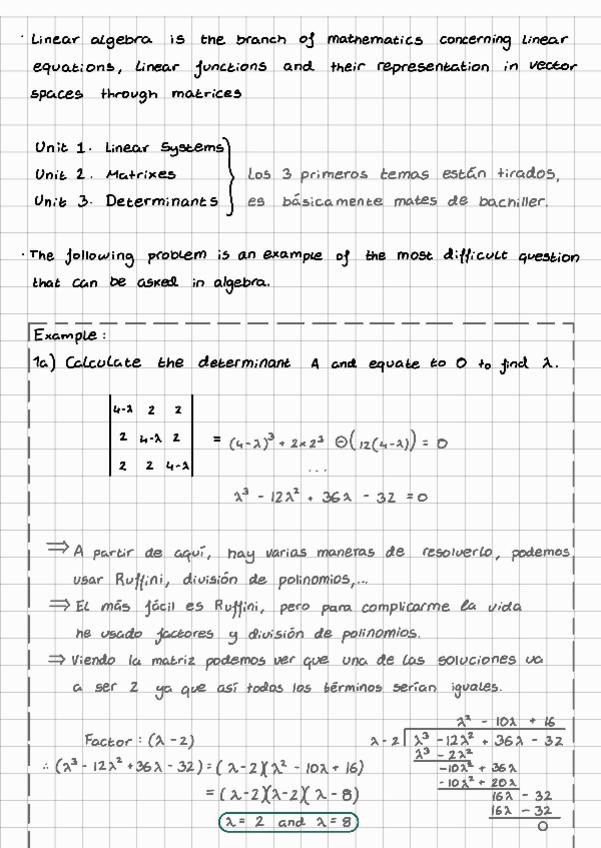 · Linear algebra is the branch of mathematics concerning linear
equations, linear functions and their representation in vector
spaces through matrices
Unit 1. Linear Systems
Unit 2. Matrixes
Unit 3. Determinants
Los 3 primeros temas están tirados,
es básicamente mates de bachiller.
· The following problem is an example of the most difficult question
that can be asked in algebra.
Example:
1a) Calculate the determinant A and equate to 0 to find λ.
|4-λ 2 2|
|2 4-λ 2| = (4-λ)³ + 2×2³ ⊖(12(4-λ)) = 0
|2 2 4-λ|
...
λ³ - 12λ² + 36λ - 32 = 0
⇒ A partir de aquí, hay varias maneras de resolverlo, podemos
usar Ruffini, división de polinomios,...
⇒ El más fácil es Ruffini, pero para complicarme la vida
he usado factores y división de polinomios.
⇒ Viendo la matriz podemos ver que una de las soluciones va
a ser 2 ya que así todos los términos serían iguales.
Factor: (λ-2)
∴ (λ³ - 12λ² + 36λ - 32) = (λ-2)(λ² - 10λ + 16)
= (λ-2)(λ-2)(λ-8)
λ = 2 and λ = 8
λ² - 10λ + 16
λ-2 | λ³ - 12λ² + 36λ - 32
λ³ - 2λ²
-10λ² + 36λ
-10λ² + 20λ
16λ - 32
16λ - 32
0